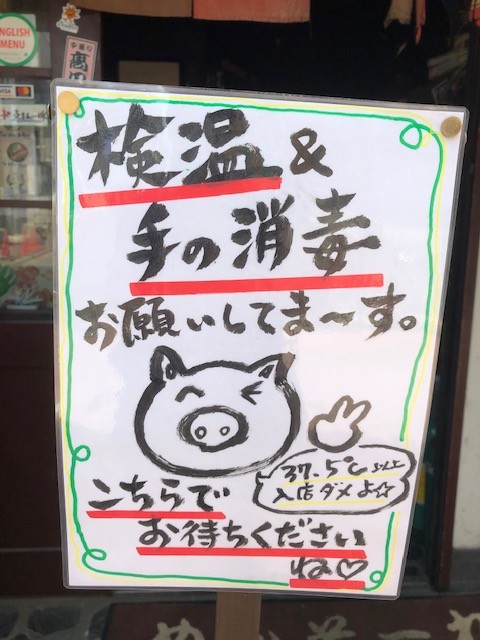 ENGLISH
MENU
VISA
検温&
手の消毒
お願いしてま〜す。
37.5℃以上
入店ダメよ☆
こちらで
お待ちください
ね♡